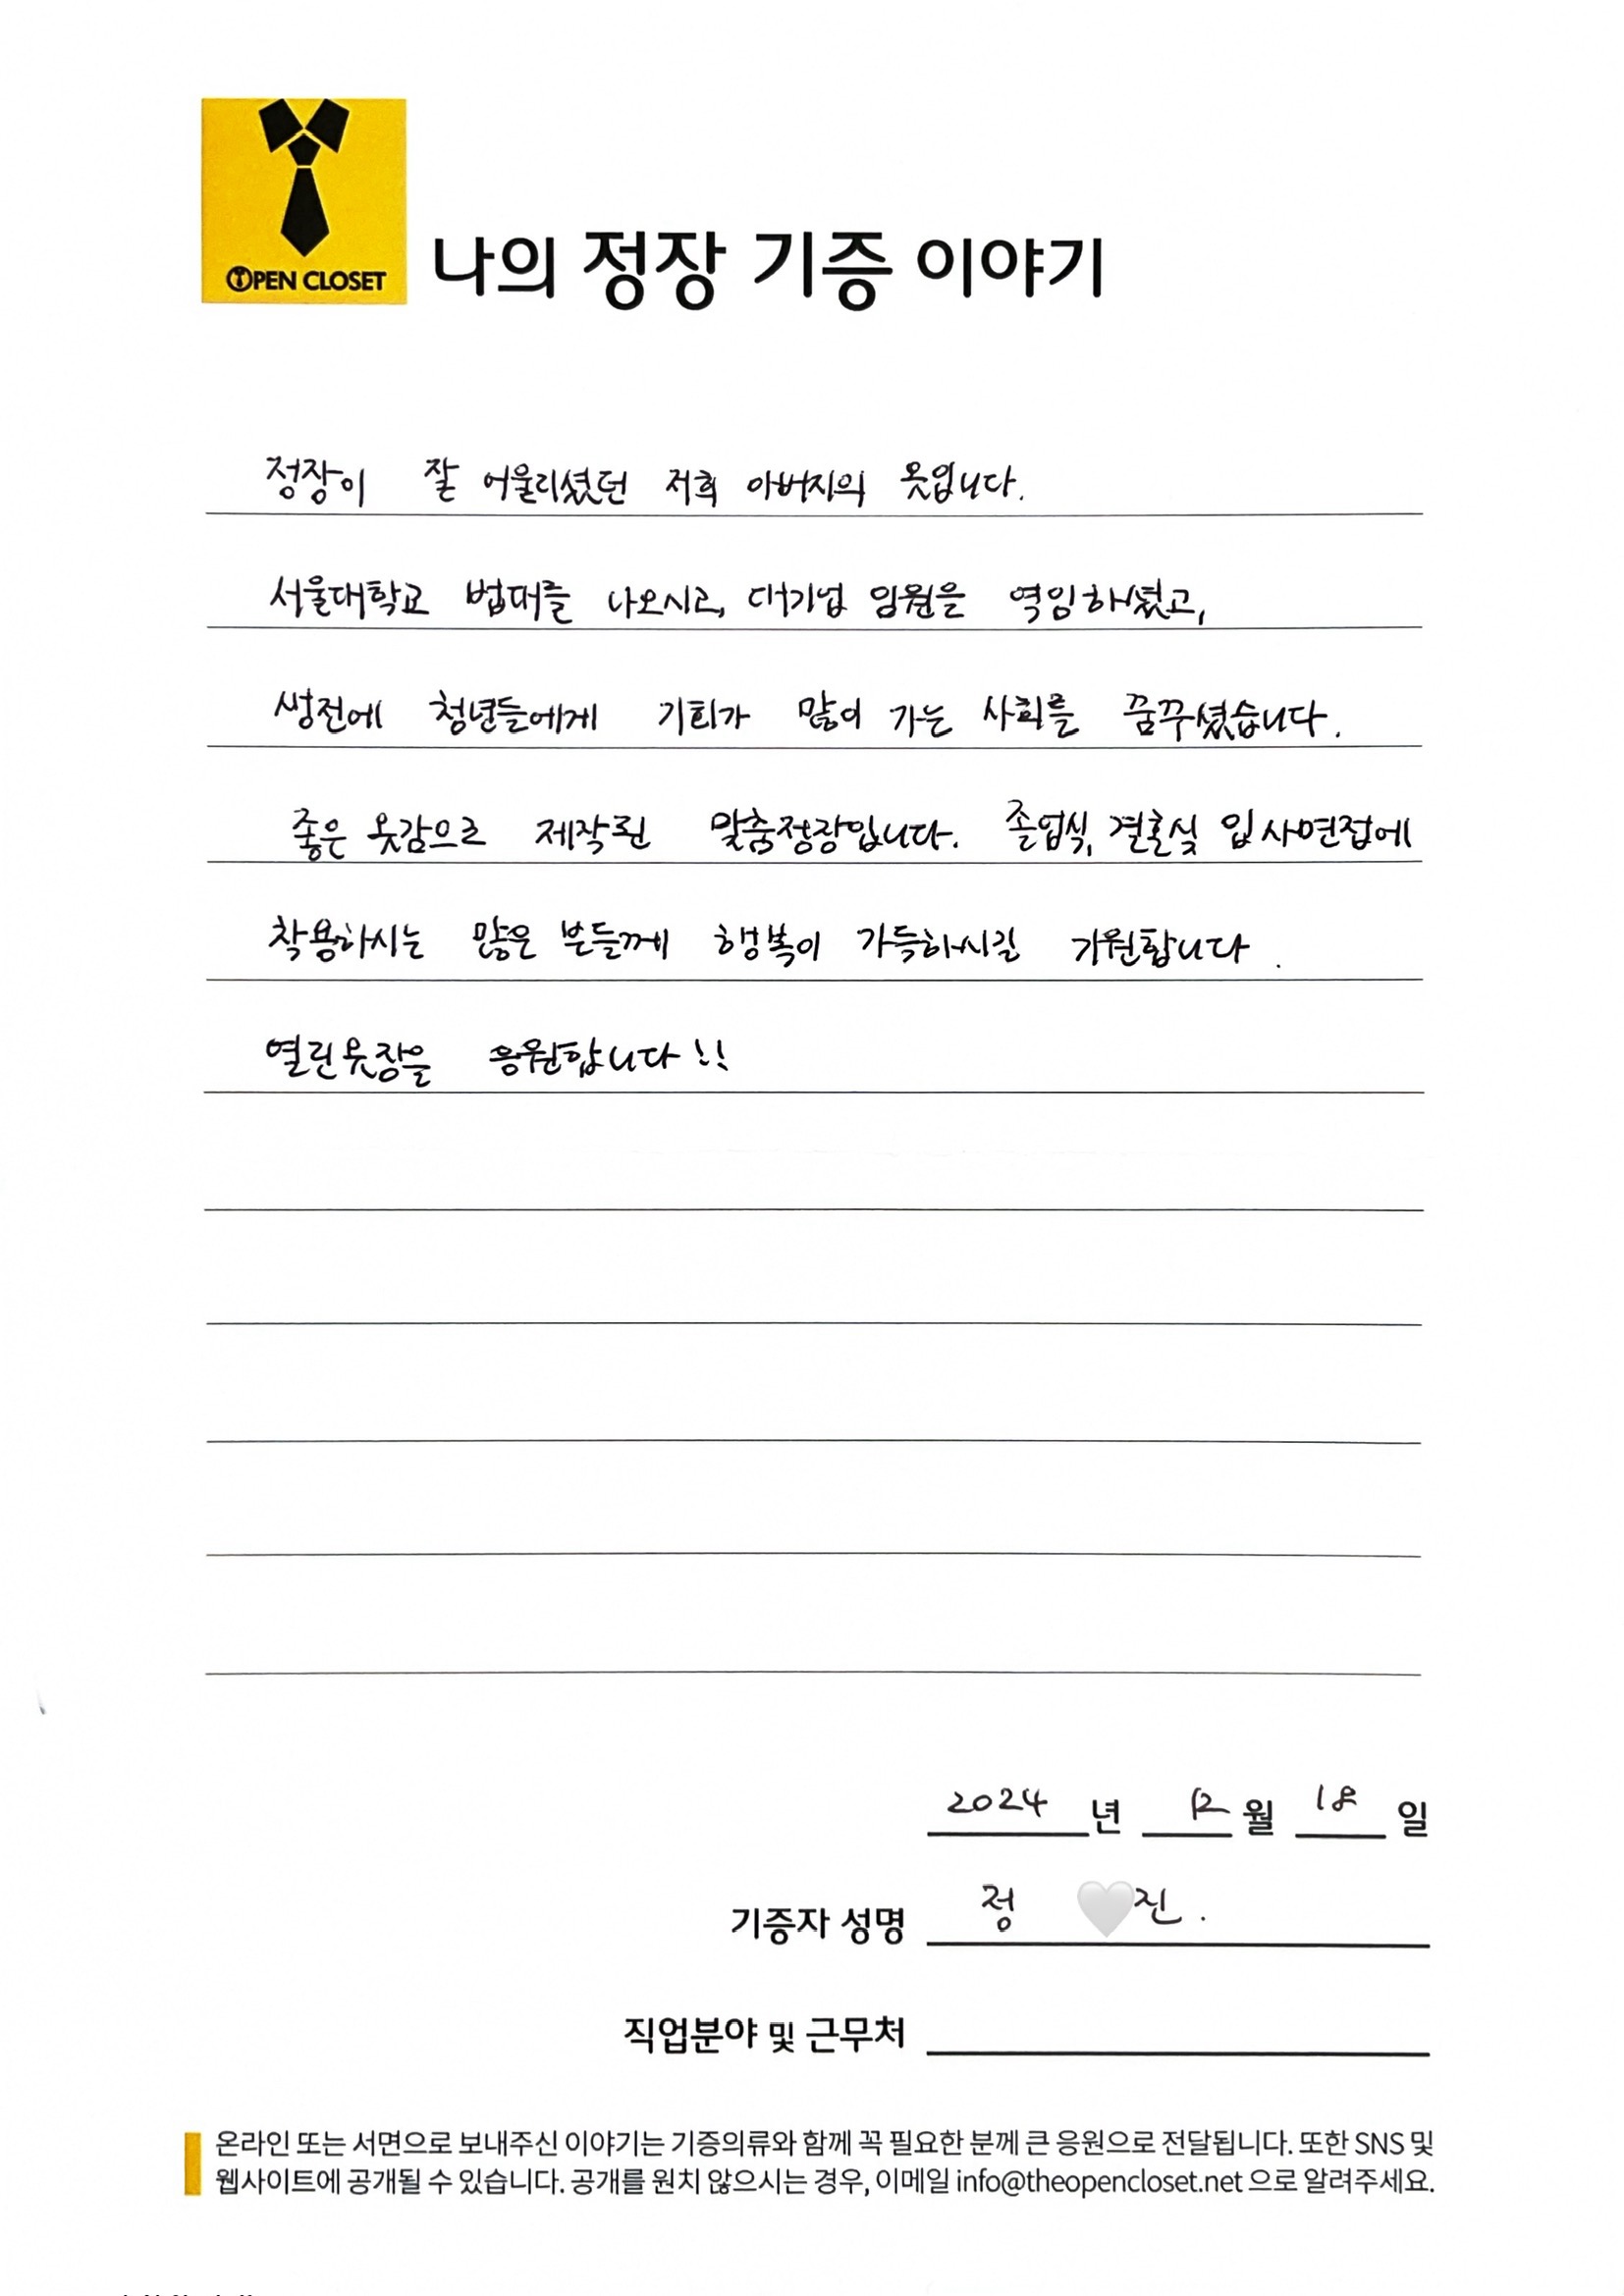 OPEN CLOSET
나의 정장 기증 이야기
정장이 잘 어울리셨던 저희 아버지의 옷입니다.
서울대학교 법대를 나오시고, 대기업 임원을 역임하셨고,
생전에 청년들에게 기회가 많이 가는 사회를 꿈꾸셨습니다.
좋은 옷감으로 제작된 맞춤정장입니다. 졸업식, 결혼식 입사면접에
착용하시는 많은 분들께 행복이 가득하시길 기원합니다.
열린옷장을 응원합니다!!
2024 년 12 월 18 일
기증자 성명 정 🤍진.
직업분야 및 근무처
온라인 또는 서면으로 보내주신 이야기는 기증의류와 함께 꼭 필요한 분께 큰 응원으로 전달됩니다. 또한 SNS 및
웹사이트에 공개될 수 있습니다. 공개를 원치 않으시는 경우, 이메일 info@theopencloset.net 으로 알려주세요.